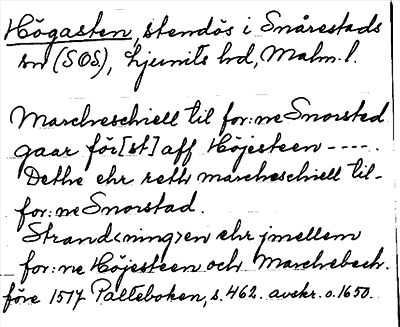 Högasten, stendös i Snårestads
sn (SOS), Ljunits hd, Malm. l.
Marcheschiell til for:ne Snorsted
gaar för[st] aff Höjesteen ----.
Dethe ehr reth marcheschiell til-
for:ne Snorstad.
Strand<ning>en ehr jmellem
for:ne Höjesteen och Marchebech.
före 1517 Palteboken, s. 462. avskr. o. 1650.